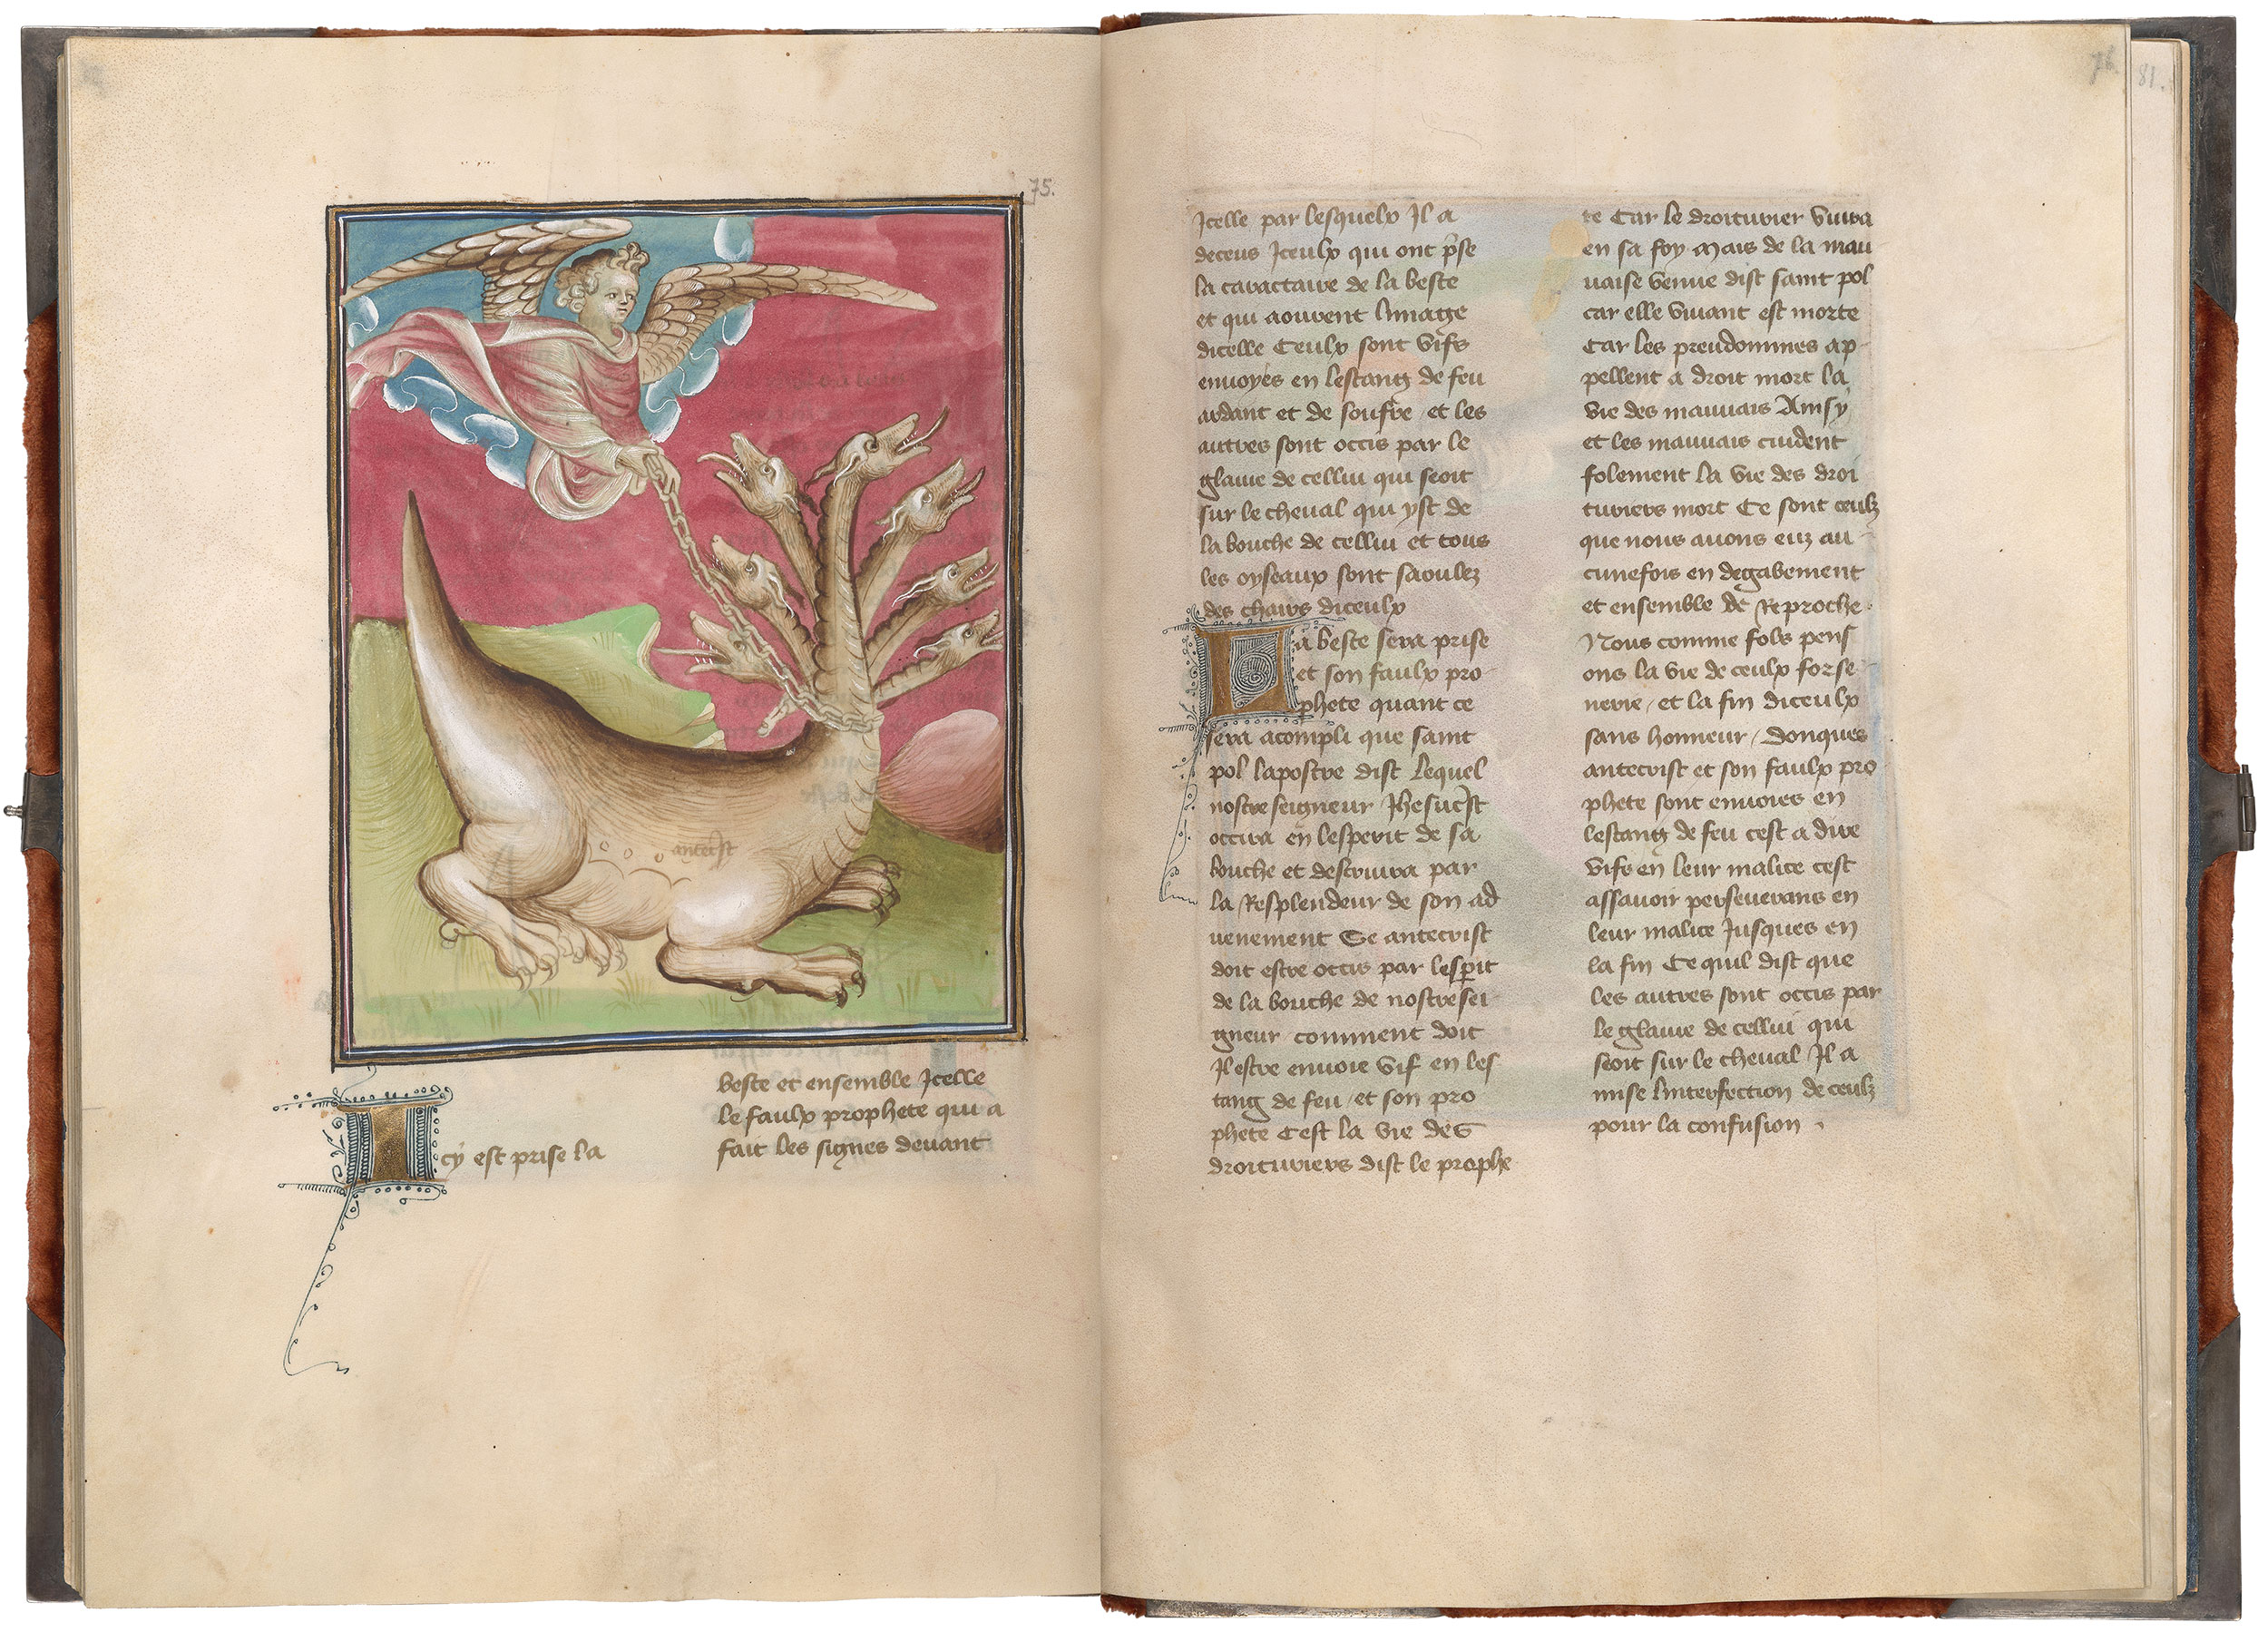 75.
antecst
Icy est prise la
beste et ensemble Icelle
le faulx prophete qui a
fait les signes devant
76.
81.
Icelle par lesquelx Il a
deceus Iceulx qui ont pse
la caractaire de la beste
et qui aourent limage
dicelle Ceulx sont vifs
enuoyes en lestang de feu
ardant et de soufre et les
autres sont occis par le
glaiue de cellui qui seoit
sur le cheual qui yst de
la bouche de cellui et tous
les oyseaux sont saoulez
des chairs diceulx
La beste sera prise
et son faulx pro
phete quant ce
sera acompli que saint
pol lapostre dist lequel
nostre seigneur Ihesucst
occira en lesperit de sa
bouche et destruira par
la Resplendeur de son ad
uenement Se antecrist
doit estre occis par lespit
de la bouche de nostre sei
gneur comment doit
Il estre enuoie vif en les
tang de feu et son pro
phete Cest la vie des
droituriers dist le prophe
te Car le droiturier viura
en sa foy Mais de la mau
uaise venue dist saint pol
car elle viuant est morte
Car les preudommes ap
pellent a droit mort la
vie des mauuais Ainsy
et les mauuais cuident
folement la vie des droi
turiers mort Ce sont ceulz
que nous auons euz au
cunefois en degabement
et ensemble de Reproche
Nous comme fols pens
ons la vie de ceulx forse
nerie et la fin diceulx
sans honneur Donques
antecrist et son faulx pro
phete sont enuoies en
lestang de feu cest a dire
vifs en leur malice cest
assauoir perseuerans en
leur malice Jusques en
la fin Ce quil dist que
les autres sont occis par
le glaiue de cellui qui
seoit sur le cheual Il a
mise linterfection de ceulz
pour la confusion .